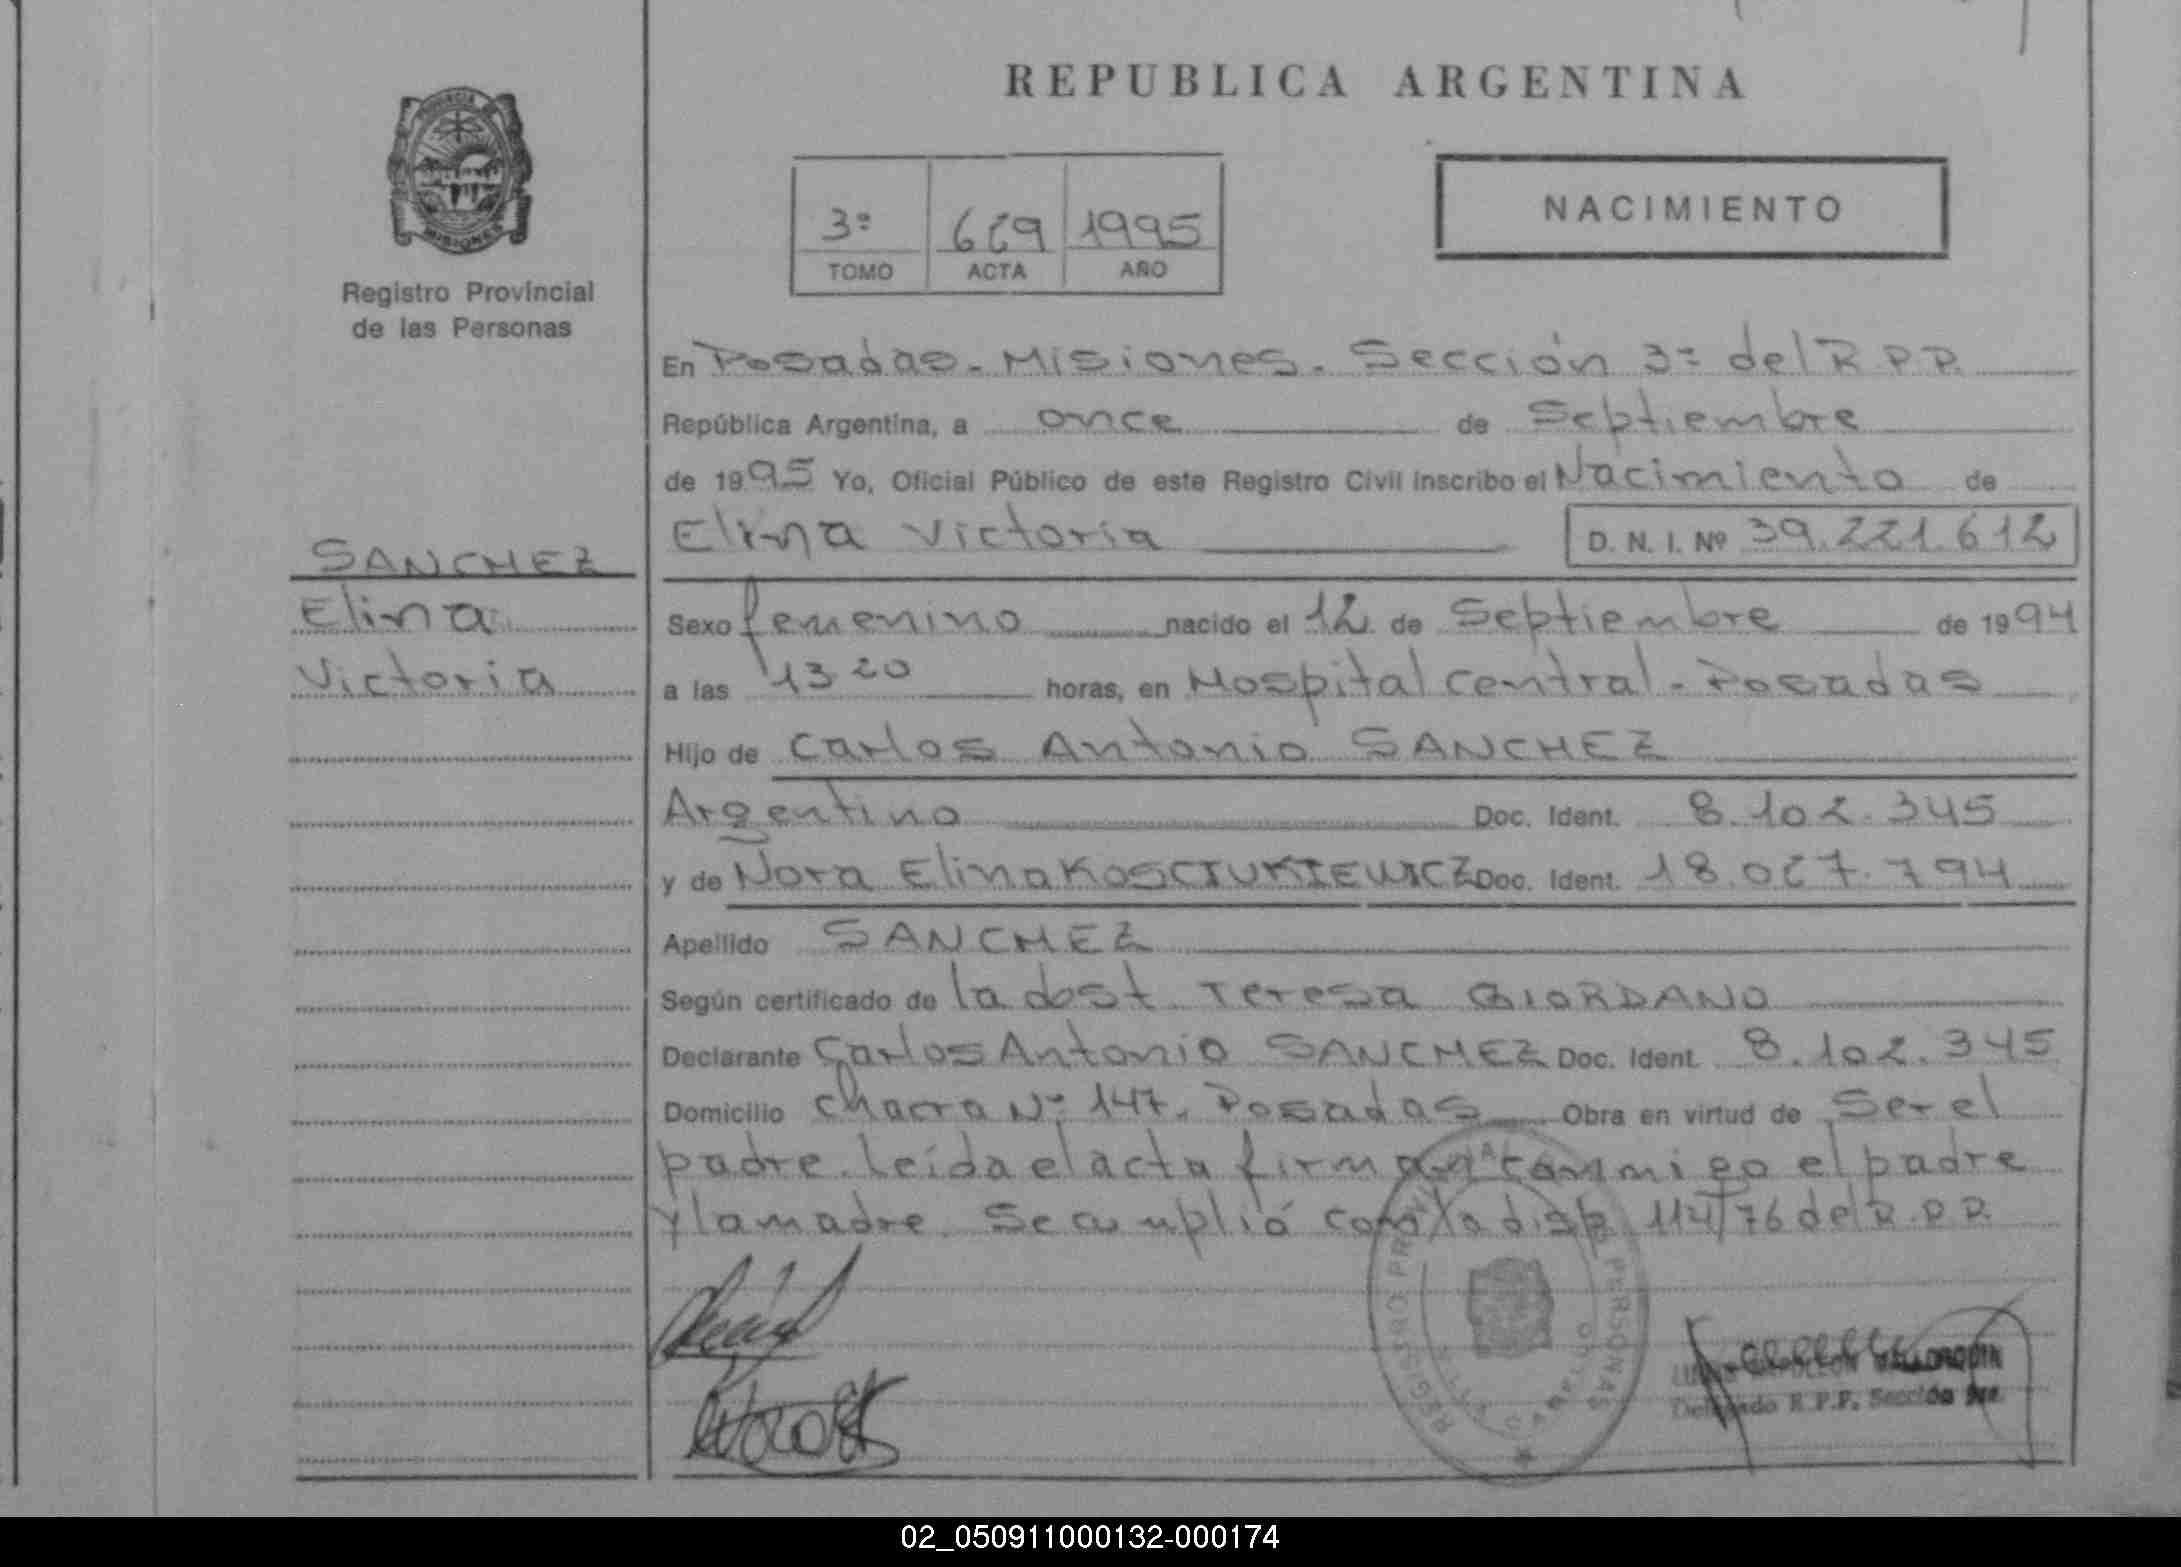 REPUBLICA ARGENTINA
PROVINCIA
MISIONES
Registro Provincial
de las Personas
NACIMIENTO
3º 669 1995
TOMO ACTA AÑO
En Posadas - Misiones. Sección 3º del R.P.P.
República Argentina, a once de Septiembre
de 1995 Yo, Oficial Público de este Registro Civil inscribo el Nacimiento de
Elina Victoria D. N. I. Nº 39.221.612
SANCHEZ
Elina
Victoria
Sexo femenino nacido el 12 de Septiembre de 1994
a las 13 20 horas, en Hospital Central - Posadas
Hijo de Carlos Antonio SANCHEZ
Argentino Doc. Ident. 8.102.345
y de Nora Elina KOSCIUKIEWICZ Doc. Ident. 18.067.794
Apellido SANCHEZ
Según certificado de la obst. Teresa GIORDANO
Declarante Carlos Antonio SANCHEZ Doc. Ident. 8.102.345
Domicilio Chacra Nº 147. Posadas Obra en virtud de Ser el
padre. Leída el acta firman conmigo el padre
y la madre. Se cumplió con la disp. 114/76 del R.P.P.
REGISTRO PERSONAS
Delegado R.P.P. Sección 3ra.
02_050911000132-000174